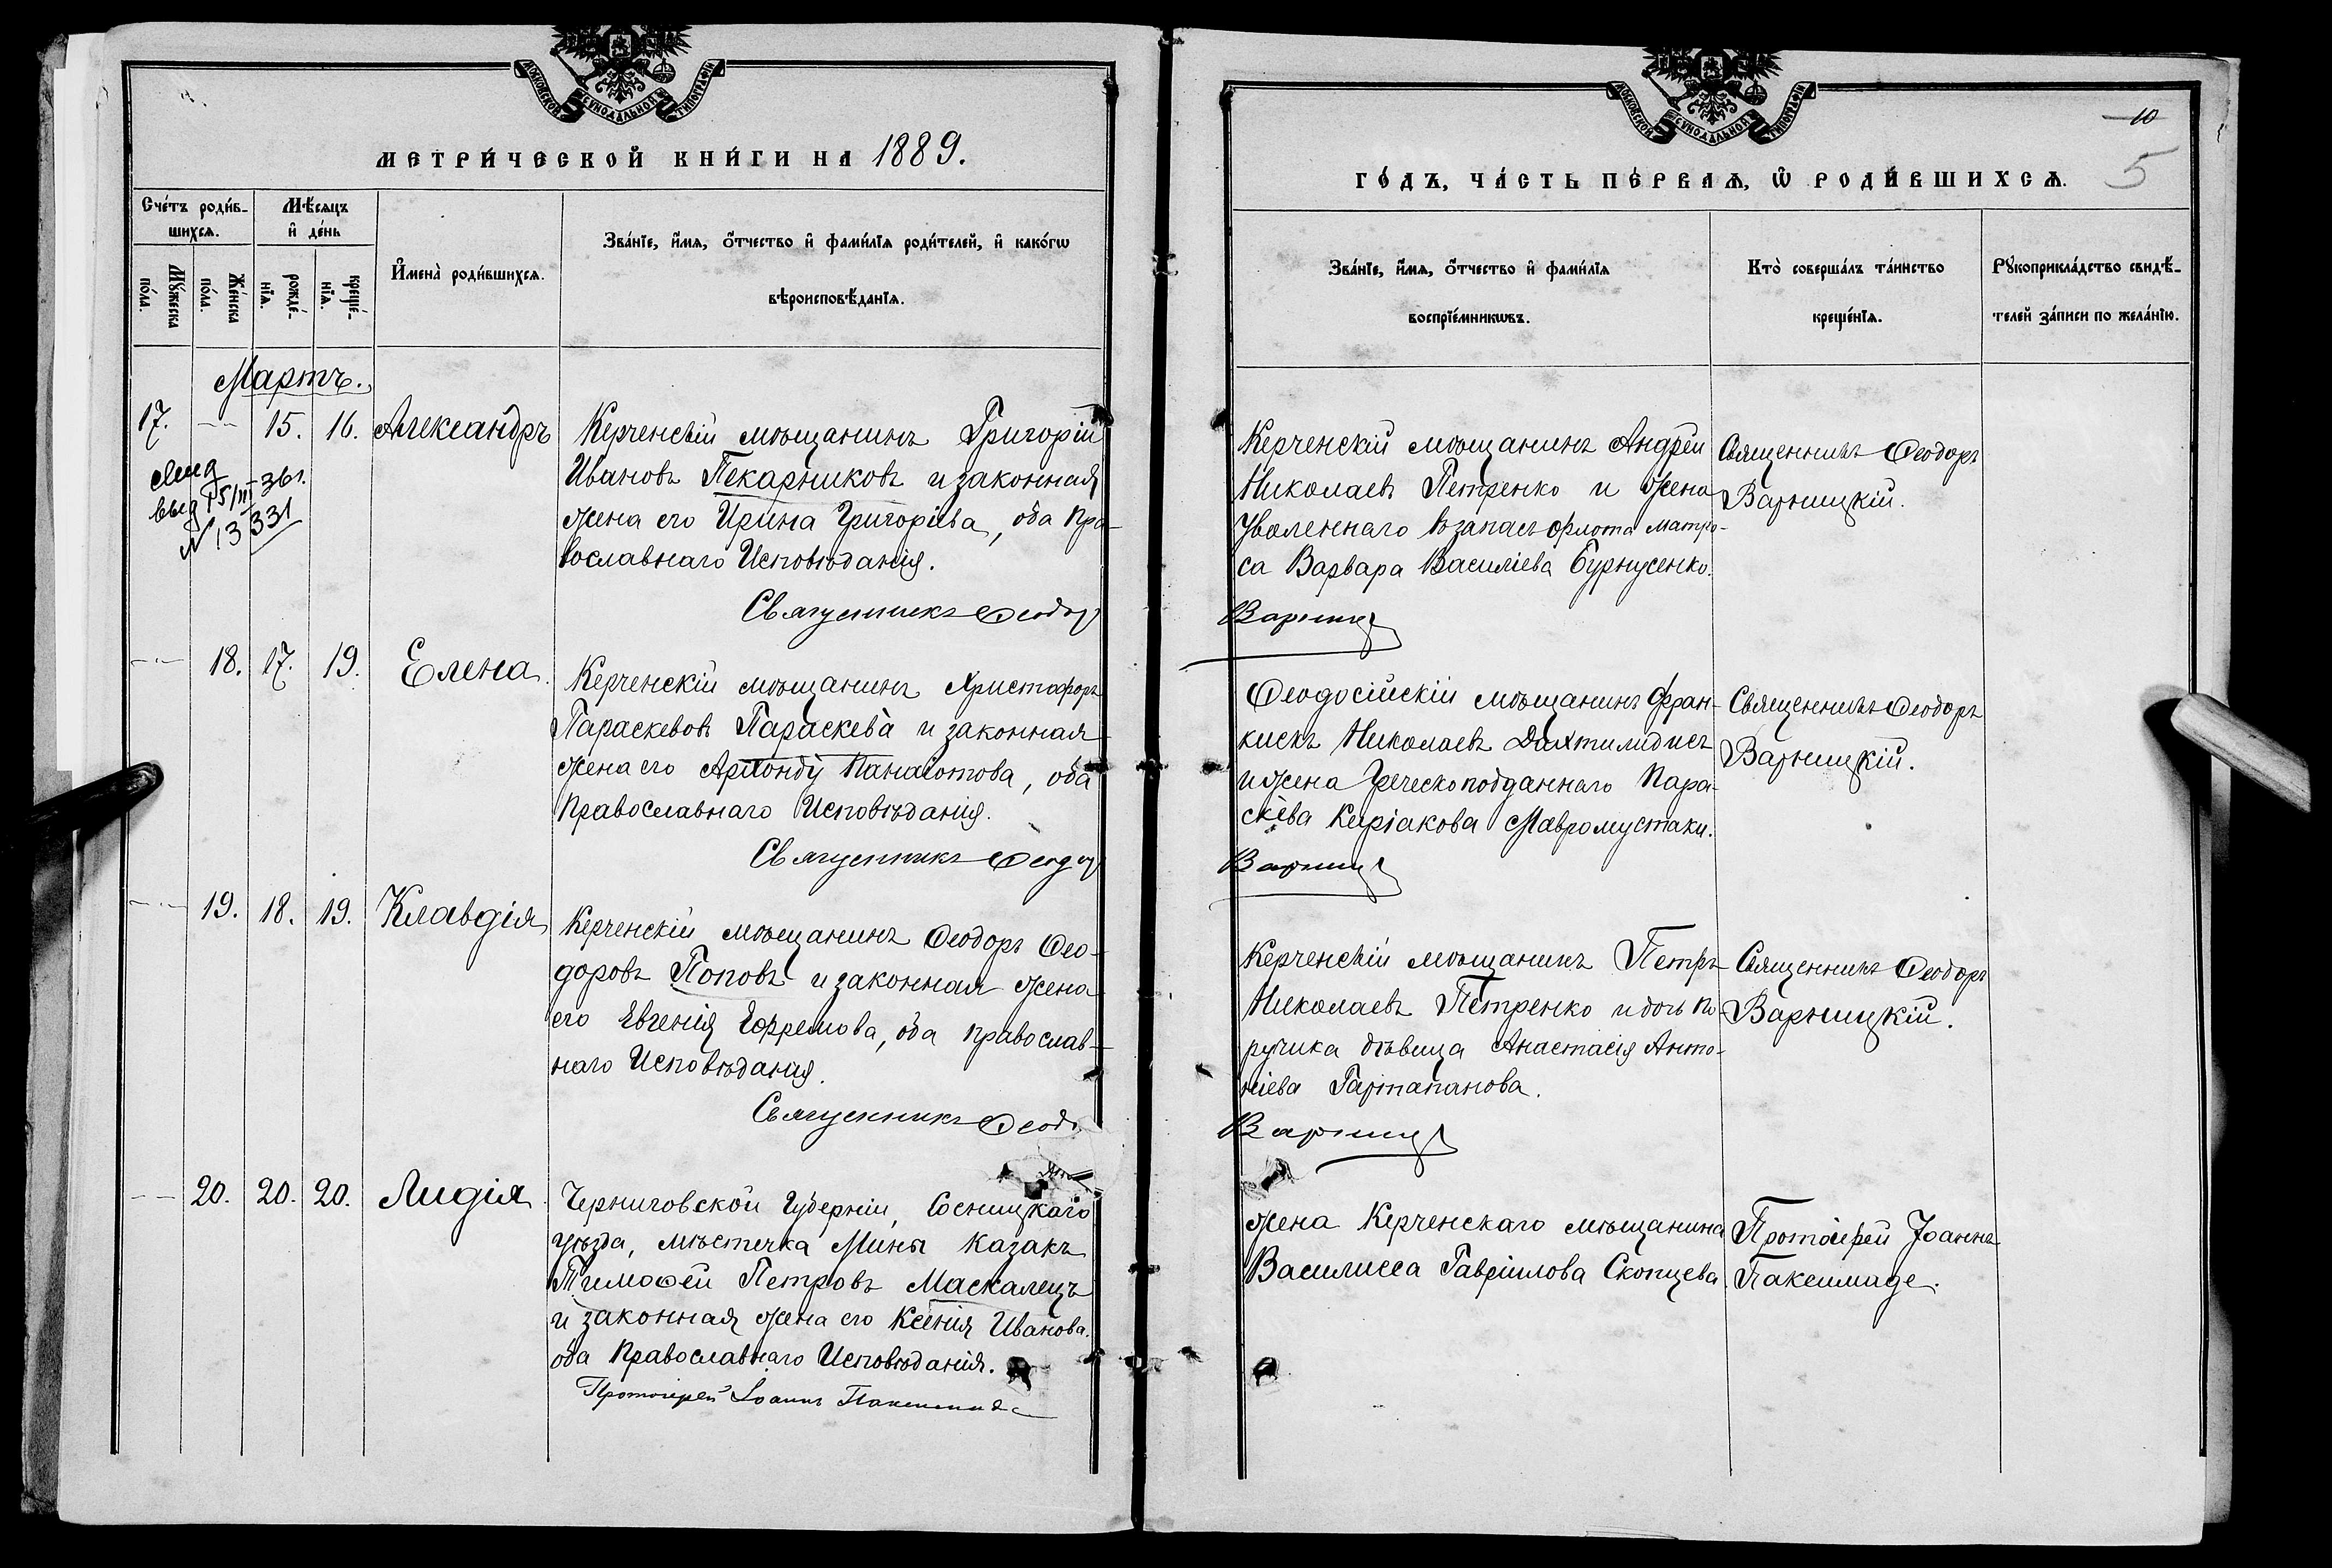 МОСКОВСКОЙ СѴНОДАЛЬНОЙ ТИПОГРАФІИ
МЕТРИ́ЧЕСКОЙ КНИ́ГИ НА 1889.
Сче́тъ роди́в-
шихсѧ.
Мѣ́сѧцъ
и҆ де́нь
Мꙋ́жеска
по́ла.
Же́нска
по́ла.
рожде́-
нїѧ.
креще́-
нїѧ.
И҆мена̀ роди́вшихсѧ.
Зва́нїе, и҆́мѧ, ѻ҆́тчество и҆ фами́лїѧ роди́телей, и҆ како́гѡ
вѣроисповѣ́данїѧ.
Мартъ.
17. -- 15. 16. Александръ
Керченскій мѣщанинъ Григорій
Ивановъ Пекарниковъ и законная
жена его Ирина Григоріева, оба Пра-
вославнаго Исповѣданія.
Священникъ Ѳеодор
выд 15/III-36г.
N 13 331
-- 18. 17. 19. Елена.
Керченскій мѣщанинъ Христофоръ
Параскевовъ Параскева и законная
жена его Панаіотова, оба
Православнаго Исповѣданія.
Священникъ Ѳеодор
-- 19. 18. 19. Клавдія
Керченскій мѣщанинъ Ѳеодоръ Ѳео-
доровъ Поповъ и законная жена
его Евгенія Ефремова, оба православ-
наго Исповѣданія.
Священникъ Ѳеод
-- 20. 20. 20. Лидія.
Черниговской Губерніи, Сосницкаго
уѣзда, мѣстечка Мины казакъ
Тимоѳей Петровъ Маскалецъ
и законная жена его Ксенія Иванова.
оба Православнаго Исповѣданія.
Протоіерей Іоаннъ Паксимаде
МОСКОВСКОЙ СѴНОДАЛЬНОЙ ТИПОГРАФІИ
10
5
ГО́ДЪ, ЧА́СТЬ ПЕ́РВАѦ, Ѽ РОДИ́ВШИХСѦ.
Зва́нїе, и҆́мѧ, ѻ҆́тчество и҆ фами́лїѧ
воспрїе́мникѡвъ.
Кто̀ соверша́лъ та́инство
креще́нїѧ.
Рꙋкоприкла́дство свидѣ́-
телей за́писи по жела́нїю.
Керченскій мѣщанинъ Андрей
Николаевъ Петренко и жена
Уволеннаго въ запасъ флота матро-
са Варвара Василіева Бурнусенко.
Варниц
Священникъ Ѳеодоръ
Варницкій.
Ѳеодосійскій мѣщанинъ Фран-
кискъ Николаевъ Дахтилидисъ
и жена Греческоподданнаго Пара-
скева Киріакова Мавромустаки.
Варниц
Священникъ Ѳеодоръ
Варницкій.
Керченскій мѣщанинъ Петръ
Николаевъ Петренко и дочь По-
ручика дѣвица Анастасія Анто-
ніева Гартапанова.
Варниц
Священникъ Ѳеодоръ
Варницкій.
жена Керченскаго мѣщанина
Василисса Гавріилова Скопцева.
Протоіерей Іоаннъ
Паксимаде.